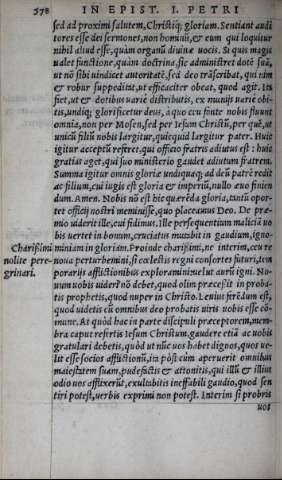 578 IN EPIST. I. PETRI
sed ad proximi salutem, Christiq; gloriam. Sentiant audi
tores esse dei sermones, non hominū, & eum qui loquitur
nihil aliud esse, quàm organū diuinæ uocis. Si quis magis
ualet functione, quàm doctrina, sic administret dotē suā,
ut nō sibi uindicet autoritatē, sed deo trāscribat, qui uim
& robur suppeditat, ut efficaciter obeat, quod agit. Ita
fiet, ut & dotibus uariè distributis, ex munijs uariè obi-
tis, undiq; glorificetur deus, à quo ceu fonte nobis fluunt
omnia, non per Mosen, sed per Iesum Christū, per quē, ut
unicū filiū nobis largitur, quicquid largitur pater. Huic
igitur acceptū referet, qui officio fratris adiutus est: huic
gratias aget, qui suo ministerio gaudet adiutum fratrem.
Summa igitur omnis gloriæ undiquaq; ad deū patrē redit
ac filium, cui iugis est gloria & imperiū, nullo æuo finien
dum. Amen. Nobis nō est hic quærēda gloria, tantū opor-
tet officij nostri meminisse, quo placeamus Deo. De præ-
mio uiderit ille, cui fidimus. Ille persequentium malitiā uo
bis uertet in bonum, cruciatus mutabit in gaudium, igno-
Charissimi miniam in gloriam. Proinde charissimi, ne interim, ceu re
nolite pere- noua perturbemini, si cœlestis regni consortes futuri, tem
grinari. porarijs afflictionibus exploramini uelut aurū igni. No-
uum uobis uideri nō debet, quod olim præcessit in proba-
tis prophetis, quod nuper in Christo. Leuius ferēdum est,
quod uidetis cū omnibus deo probatis uiris uobis esse cō-
mune. At quòd hac in parte discipuli præceptorem, mem-
bra caput refertis Iesum Christum. gaudere etiā ac uobis
gratulari debetis, quòd ut nūc uos habet dignos, quos ue-
lit esse socios afflictionū, ita pòst cùm aperuerit omnibus
maiestatem suam, pudefactis & attonitis, qui illū & illius
odio uos afflixerūt, exultabitis ineffabili gaudio, quod sen
tiri potest, uerbis exprimi non potest. Interim si probris
uos